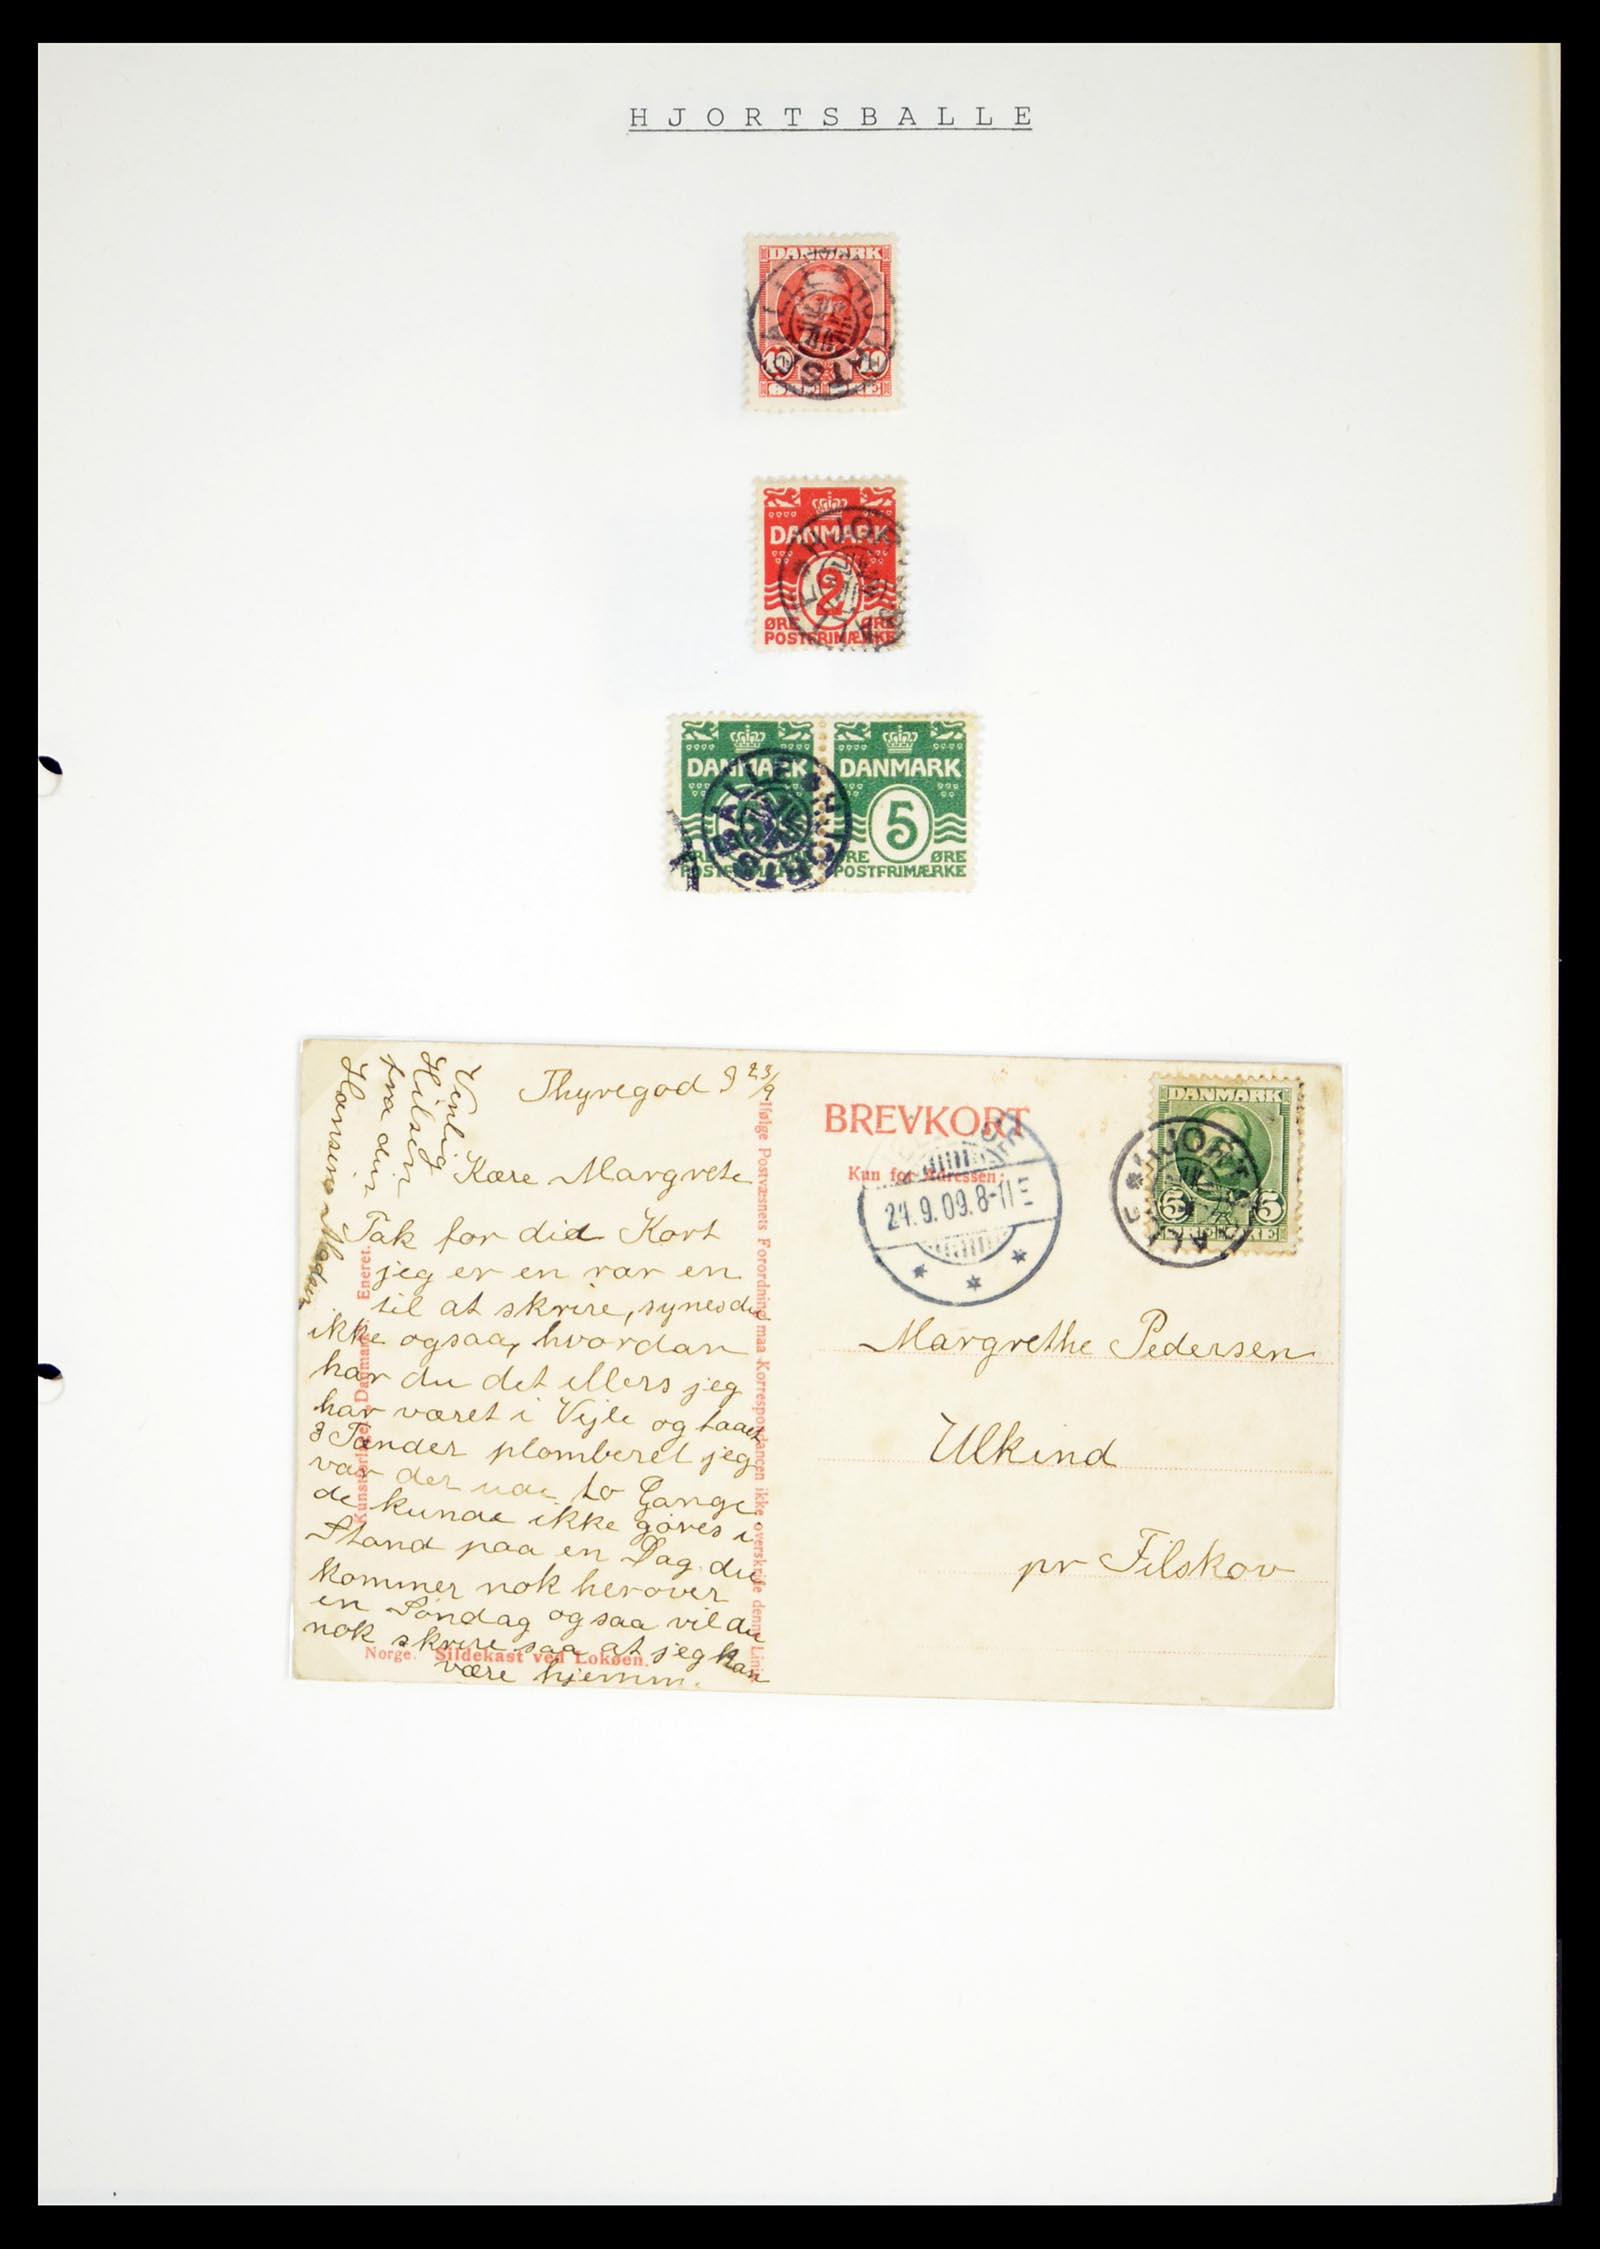 HJORTSBALLE
DANMARK
10 10
DANMARK
2
ØRE ØRE
POSTFRIMÆRKE
HJORTSBALLE
DANMARK DANMARK
5
ØRE ØRE ØRE
POSTFRIMÆRKE POSTFRIMÆRKE
HJORTSBALLE
Thyregod 23/9
Kære Margrete
Tak for did Kort
jeg er en rar en
til at skrire, synes du
ikke ogsaa, hvordan
har du det ellers jeg
har været i Vejle og faaet
3 Tænder plomberet jeg
var der ude to Gange
de kunde ikke gøres i
Stand paa en Dag. du
kommer nok herover
en Søndag ogsaa vil du
nok skrire saa at jeg kan
være hjemm.
Venlig
Hilsen
fra din
Hansine
Kunstforlaget „Danmark“. Eneret.
Norge. Sildekast ved Lokøen.
Ifølge Postvæsnets Forordning maa Korrespondancen ikke overskride denne Linie
BREVKORT
Kun for Adressen:
24.9.09.8-11E
DANMARK
5 5
HJORTSBALLE
Margrethe Pedersen
Ulkind
pr Filskov